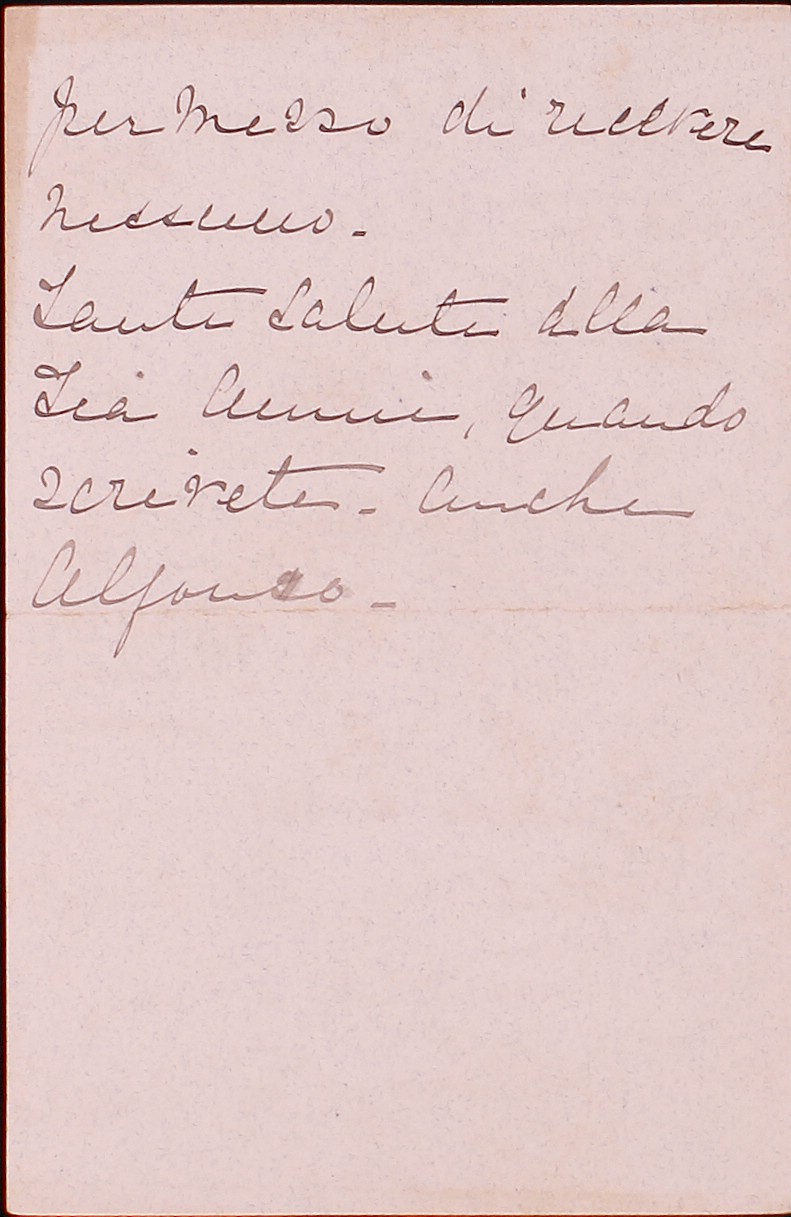 permesso di ricevere
nessuno.
Tanti saluti alla
Zia Annie, quando
scrivete. Anche
Alfonso.